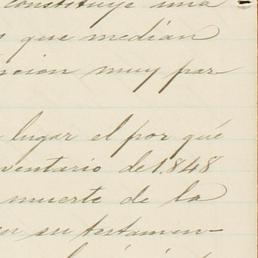 constituye una
s que median
ncion muy par
lugar el por qué
ventario de 1.848
muerte de la
en su testamen